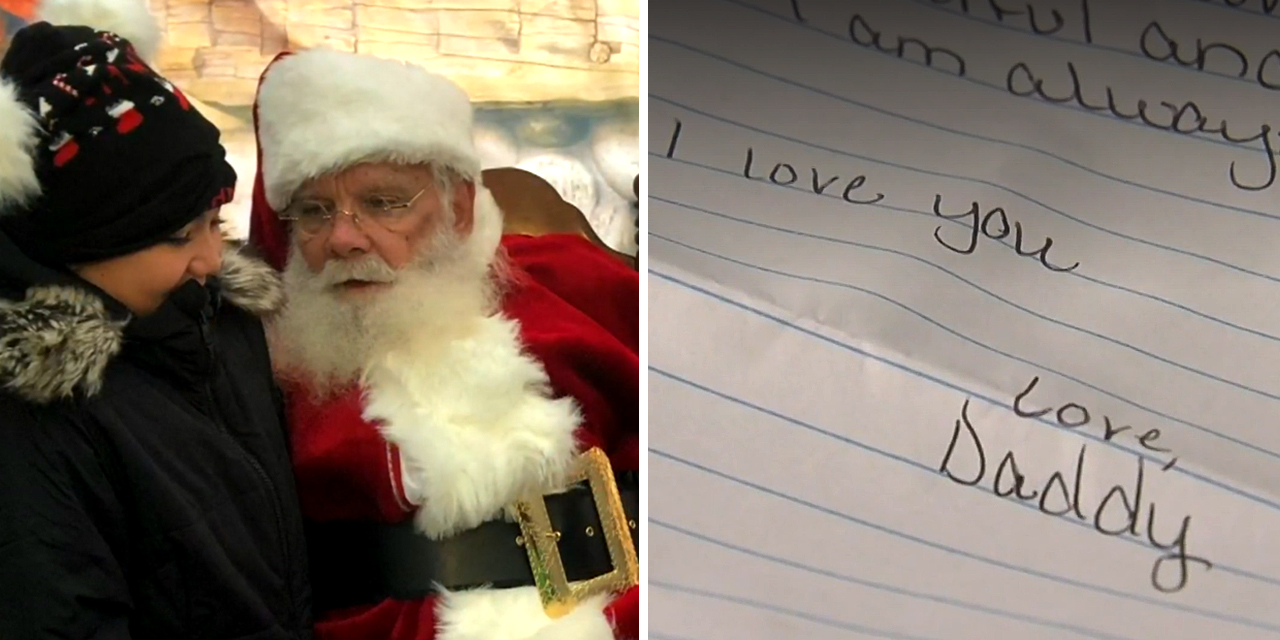 and
I am alway
I love you
Love,
Daddy